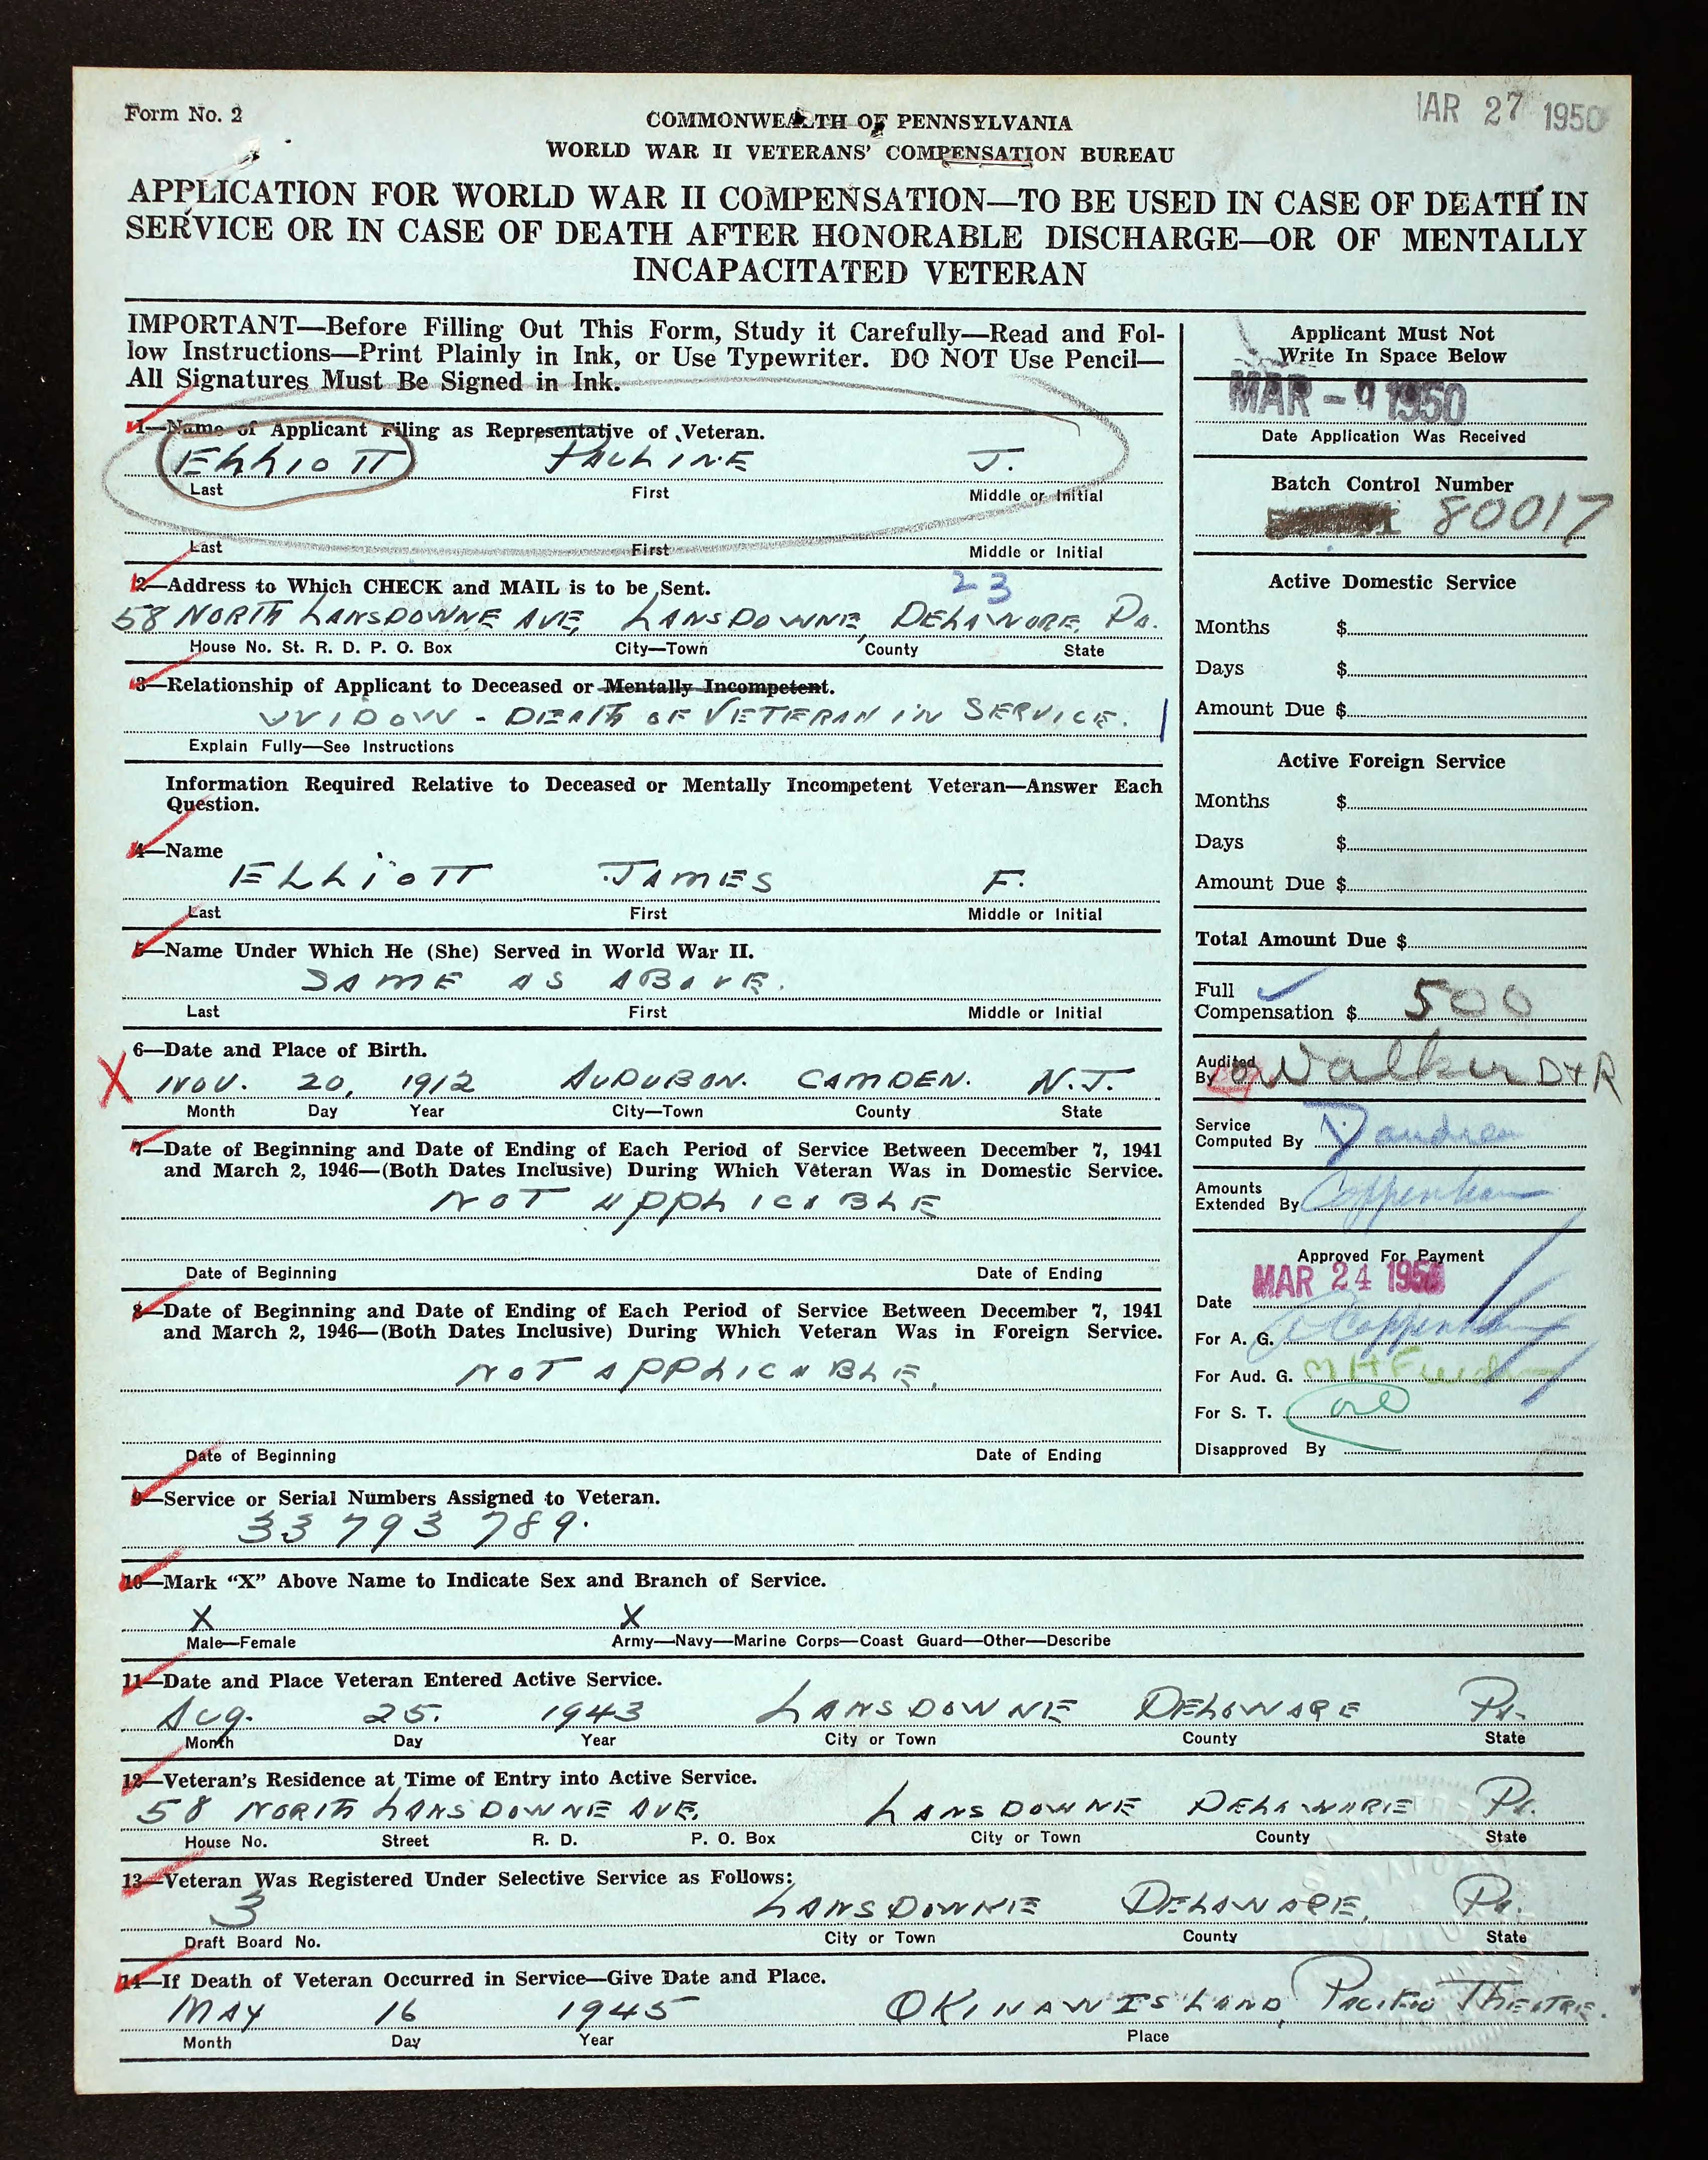 Form No. 2
COMMONWEALTH OF PENNSYLVANIA
WORLD WAR II VETERANS' COMPENSATION BUREAU
AR 27 1950
APPLICATION FOR WORLD WAR II COMPENSATION—TO BE USED IN CASE OF DEATH IN
SERVICE OR IN CASE OF DEATH AFTER HONORABLE DISCHARGE—OR OF MENTALLY
INCAPACITATED VETERAN
IMPORTANT—Before Filling Out This Form, Study it Carefully—Read and Fol-
low Instructions—Print Plainly in Ink, or Use Typewriter. DO NOT Use Pencil—
All Signatures Must Be Signed in Ink.
1—Name of Applicant Filing as Representative of Veteran.
ELLIOTT PAULINE J.
Last First Middle or Initial
Last First Middle or Initial
2—Address to Which CHECK and MAIL is to be Sent. 23
58 NORTH LANSDOWNE AVE, LANSDOWNE, DELAWARE, Pa.
House No. St. R. D. P. O. Box City—Town County State
3—Relationship of Applicant to Deceased or Mentally Incompetent.
WIDOW - DEATH OF VETERAN IN SERVICE.
Explain Fully—See Instructions
Information Required Relative to Deceased or Mentally Incompetent Veteran—Answer Each
Question.
4—Name
ELLIOTT JAMES F.
Last First Middle or Initial
5—Name Under Which He (She) Served in World War II.
SAME AS ABOVE.
Last First Middle or Initial
6—Date and Place of Birth.
X NOV. 20, 1912 AUDUBON. CAMDEN. N.J.
Month Day Year City—Town County State
7—Date of Beginning and Date of Ending of Each Period of Service Between December 7, 1941
and March 2, 1946—(Both Dates Inclusive) During Which Veteran Was in Domestic Service.
NOT APPLICABLE
Date of Beginning Date of Ending
8—Date of Beginning and Date of Ending of Each Period of Service Between December 7, 1941
and March 2, 1946—(Both Dates Inclusive) During Which Veteran Was in Foreign Service.
NOT APPLICABLE.
Date of Beginning Date of Ending
Applicant Must Not
Write In Space Below
MAR - 9 1950
Date Application Was Received
Batch Control Number
80017
Active Domestic Service
Months $
Days $
Amount Due $
Active Foreign Service
Months $
Days $
Amount Due $
Total Amount Due $
Full
Compensation $ 500
Audited
By Walker D+R
Service
Computed By
Amounts
Extended By
Approved For Payment
Date MAR 24 1950
For A. G.
For Aud. G.
For S. T.
Disapproved By
9—Service or Serial Numbers Assigned to Veteran.
33 793 789.
10—Mark "X" Above Name to Indicate Sex and Branch of Service.
X X
Male—Female Army—Navy—Marine Corps—Coast Guard—Other—Describe
11—Date and Place Veteran Entered Active Service.
Aug. 25. 1943 LANSDOWNE DELAWARE Pa.
Month Day Year City or Town County State
12—Veteran's Residence at Time of Entry into Active Service.
58 NORTH LANSDOWNE AVE. LANSDOWNE DELAWARE Pa.
House No. Street R. D. P. O. Box City or Town County State
13—Veteran Was Registered Under Selective Service as Follows:
3 LANSDOWNE DELAWARE, Pa.
Draft Board No. City or Town County State
14—If Death of Veteran Occurred in Service—Give Date and Place.
MAY 16 1945 OKINAW ISLAND, PACIFIC THEATRE.
Month Day Year Place